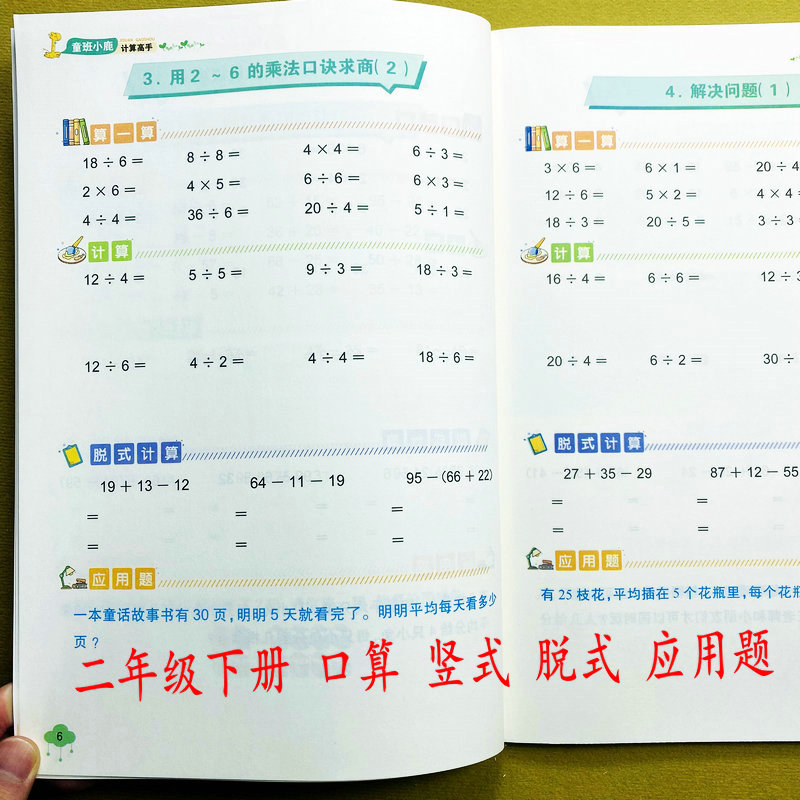 童班小鹿 计算高手
3. 用2～6的乘法口诀求商(2)
算一算
18÷6= 8÷8= 4×4= 6÷3=
2×6= 4×5= 6÷6= 6×3=
4÷4= 36÷6= 20÷4= 5÷1=
计算
12÷4= 5÷5= 9÷3= 18÷3=
12÷6= 4÷2= 4÷4= 18÷6=
脱式计算
19+13-12 64-11-19 95-(66+22)
= = =
= = =
应用题
一本童话故事书有30页,明明5天就看完了。明明平均每天看多少
页?
6
4. 解决问题(1)
算一算
3×6= 6×1= 20÷4
12÷6= 5×2= 4×4=
18÷3= 20÷5= 3÷3
计算
16÷4= 6÷6= 12÷3
20÷4= 6÷2= 30÷
脱式计算
27+35-29 87+12-55
= =
= =
应用题
有25枝花,平均插在5个花瓶里,每个花瓶
二年级下册 口算 竖式 脱式 应用题